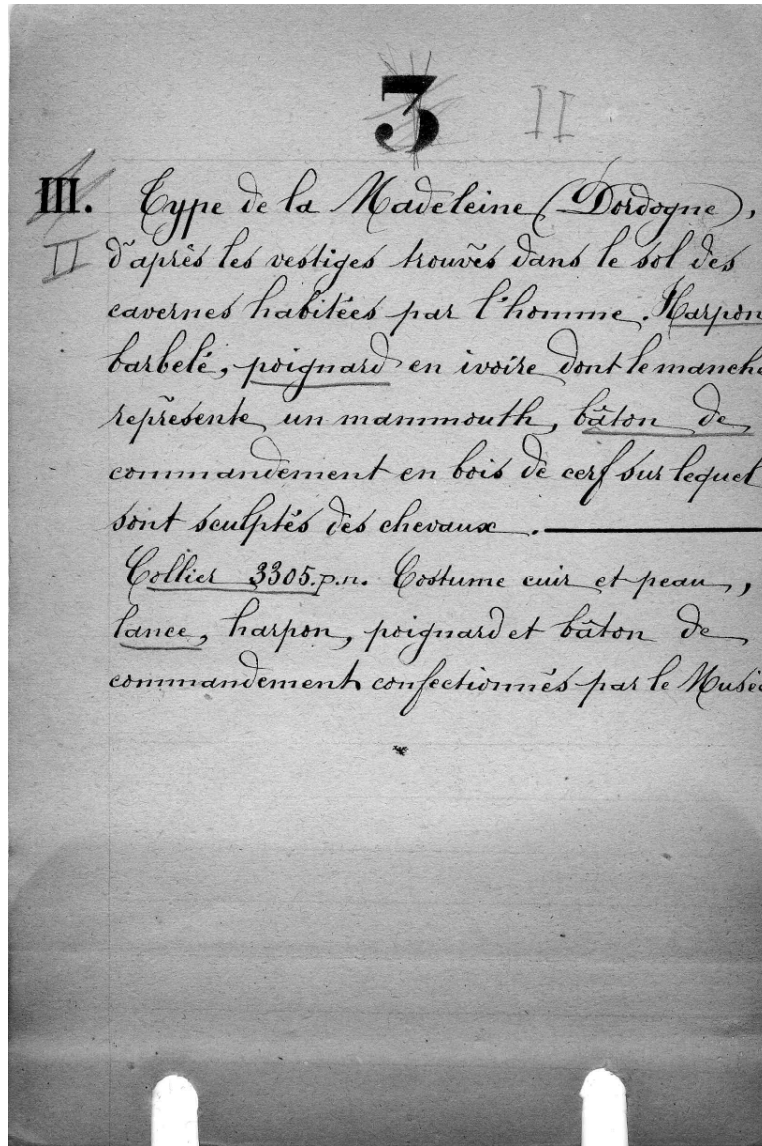 3 II
III. Type de la Madeleine (Dordogne),
II d'après les vestiges trouvés dans le sol des
cavernes habitées par l'homme. Harpon
barbelé, poignard en ivoire dont le manche
représente un mammouth, bâton de
commandement en bois de cerf sur lequel
sont sculptés des chevaux.
Collier 3305.p.n. Costume cuir et peau,
lance, harpon, poignard et bâton de
commandement confectionnés par le Musée